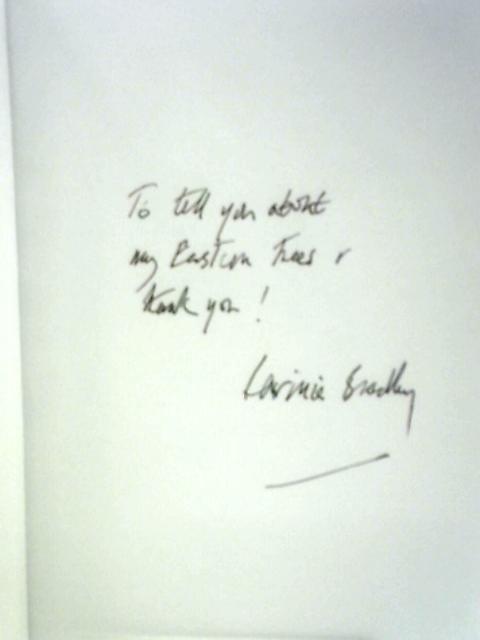 To tell you about
my Eastern Trees &
thank you!
Lavinia Bradley